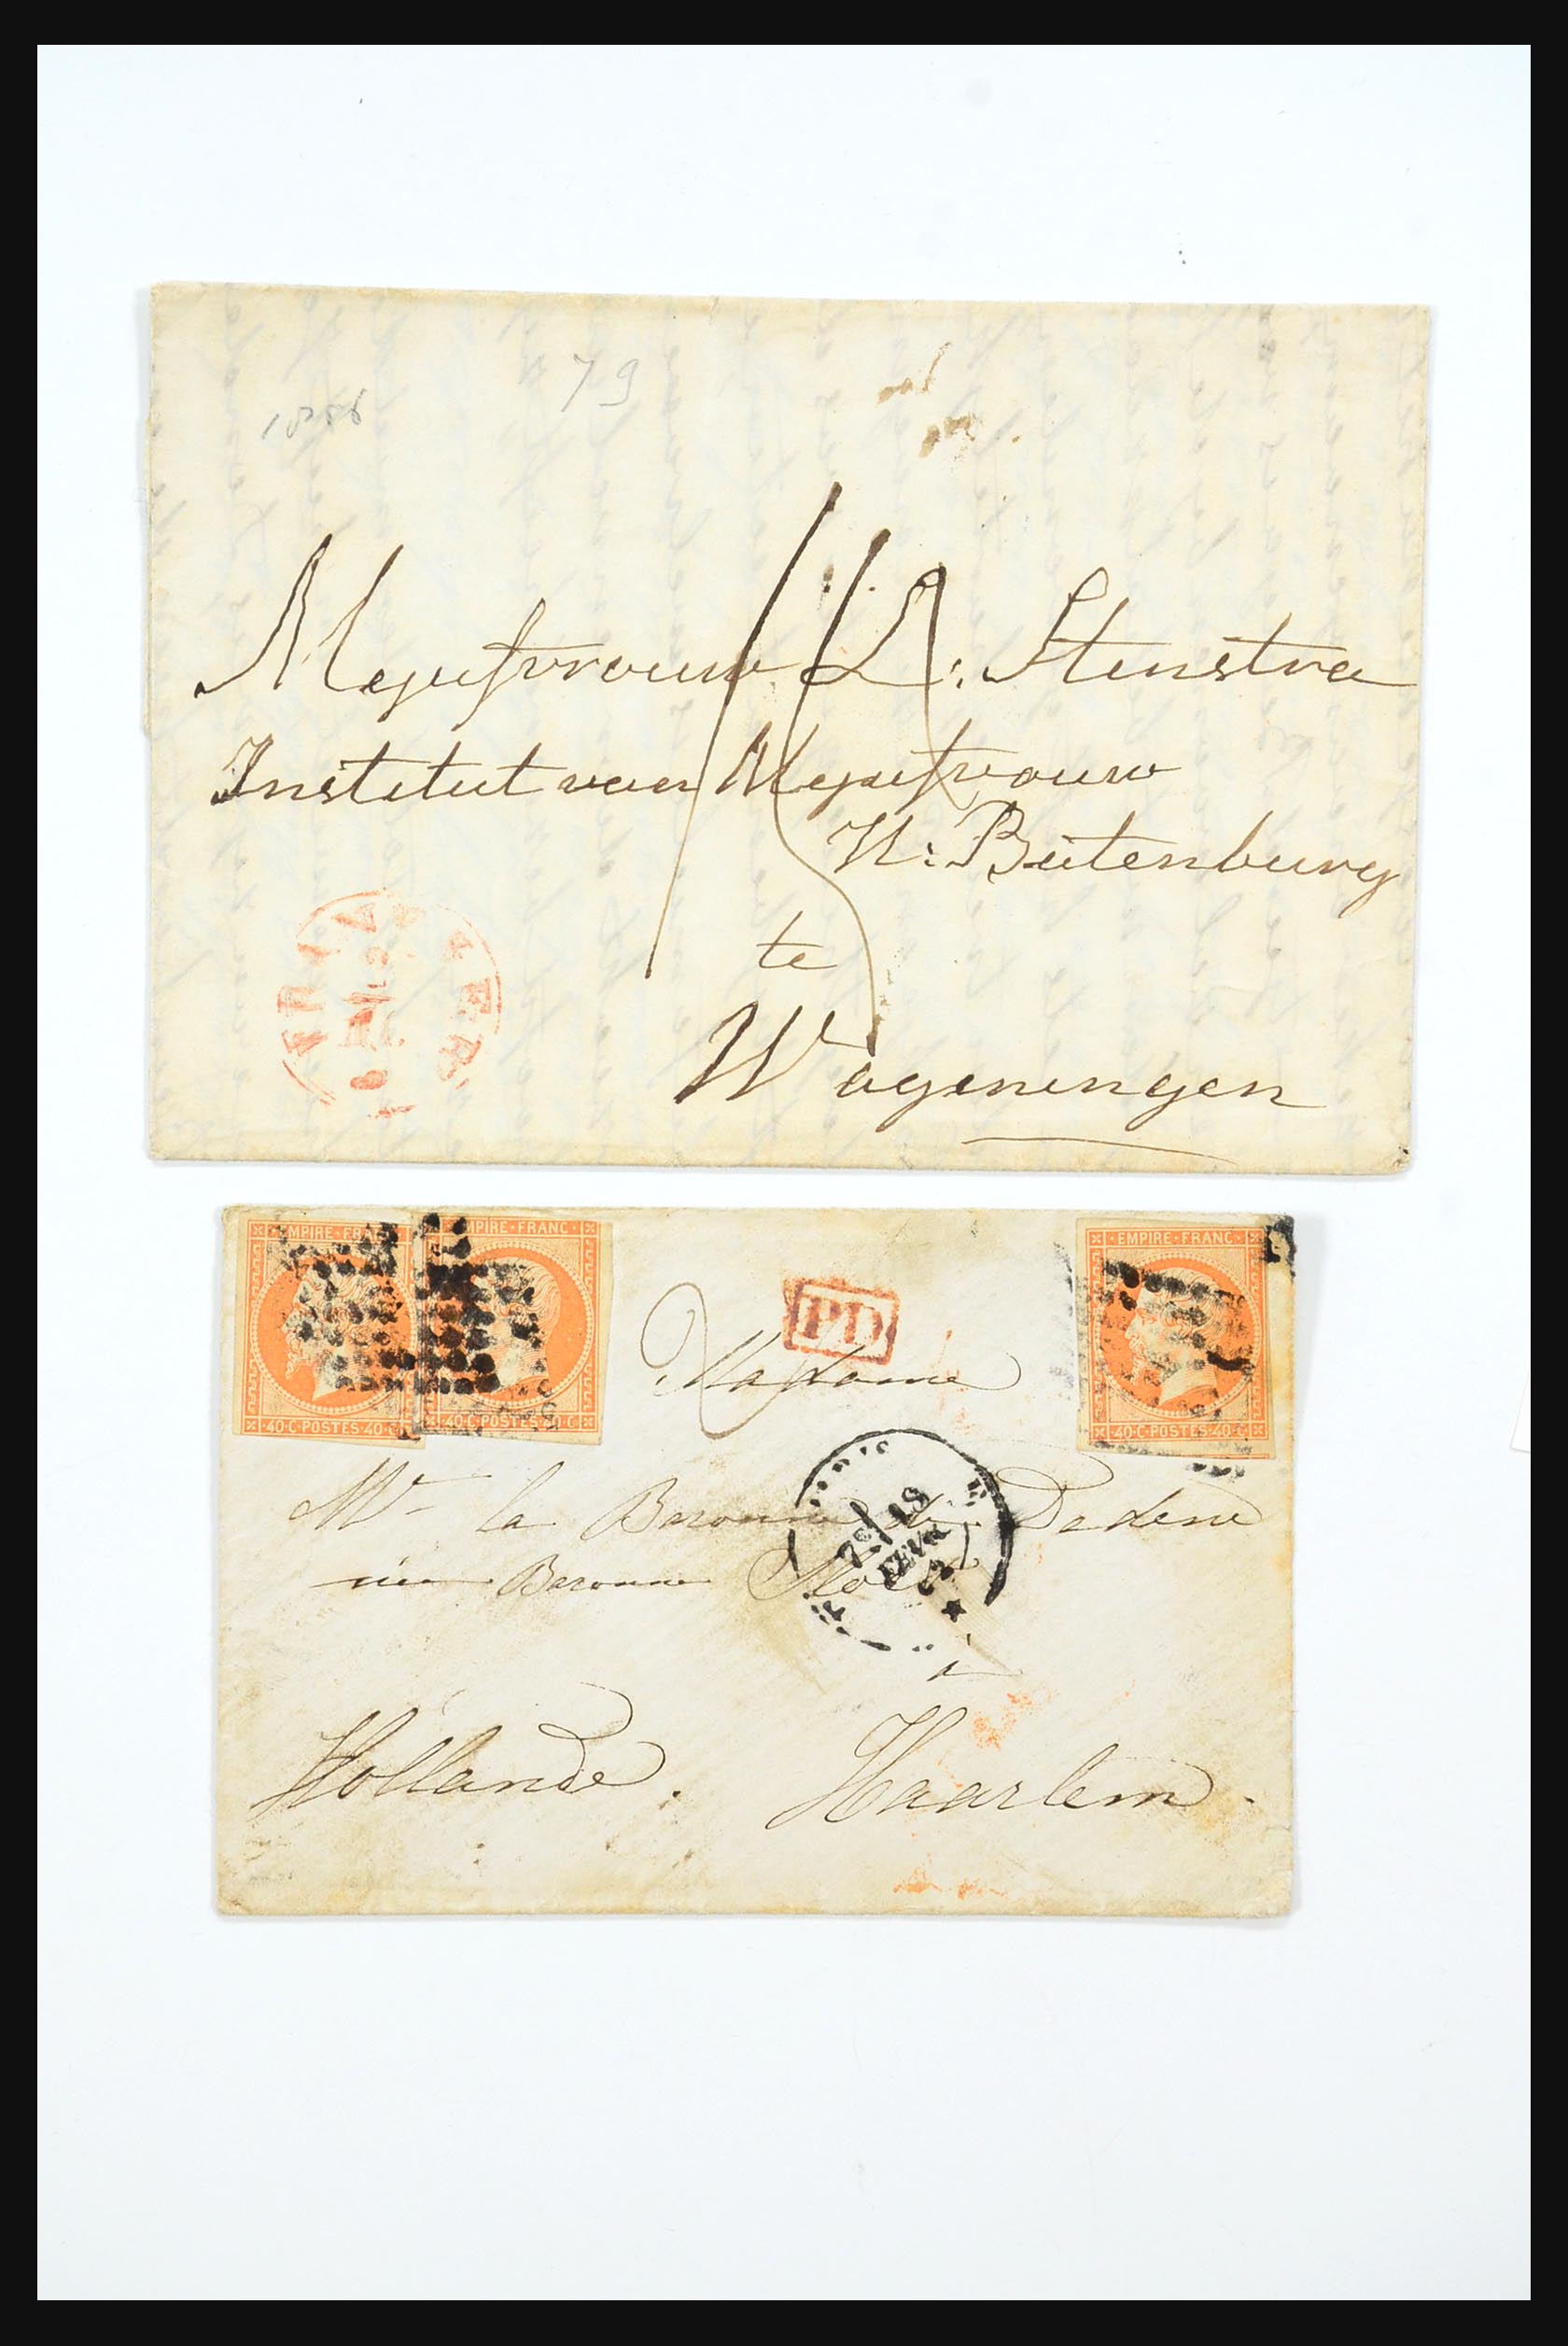 79
Mejufvrouw D: Stinstra
Institut van Mejufvrouw
H: Beitenburg
te
Wageningen
EMPIRE·FRANC
40·C·POSTES·40·C
EMPIRE·FRANC·
40·C·POSTES·40·C
·EMPIRE·FRANC·
·40·C·POSTES·40·C·
PD
Madame
la Baronne de Dedem
née Baronne
18
FEVR
à
Hollande. Haarlem.